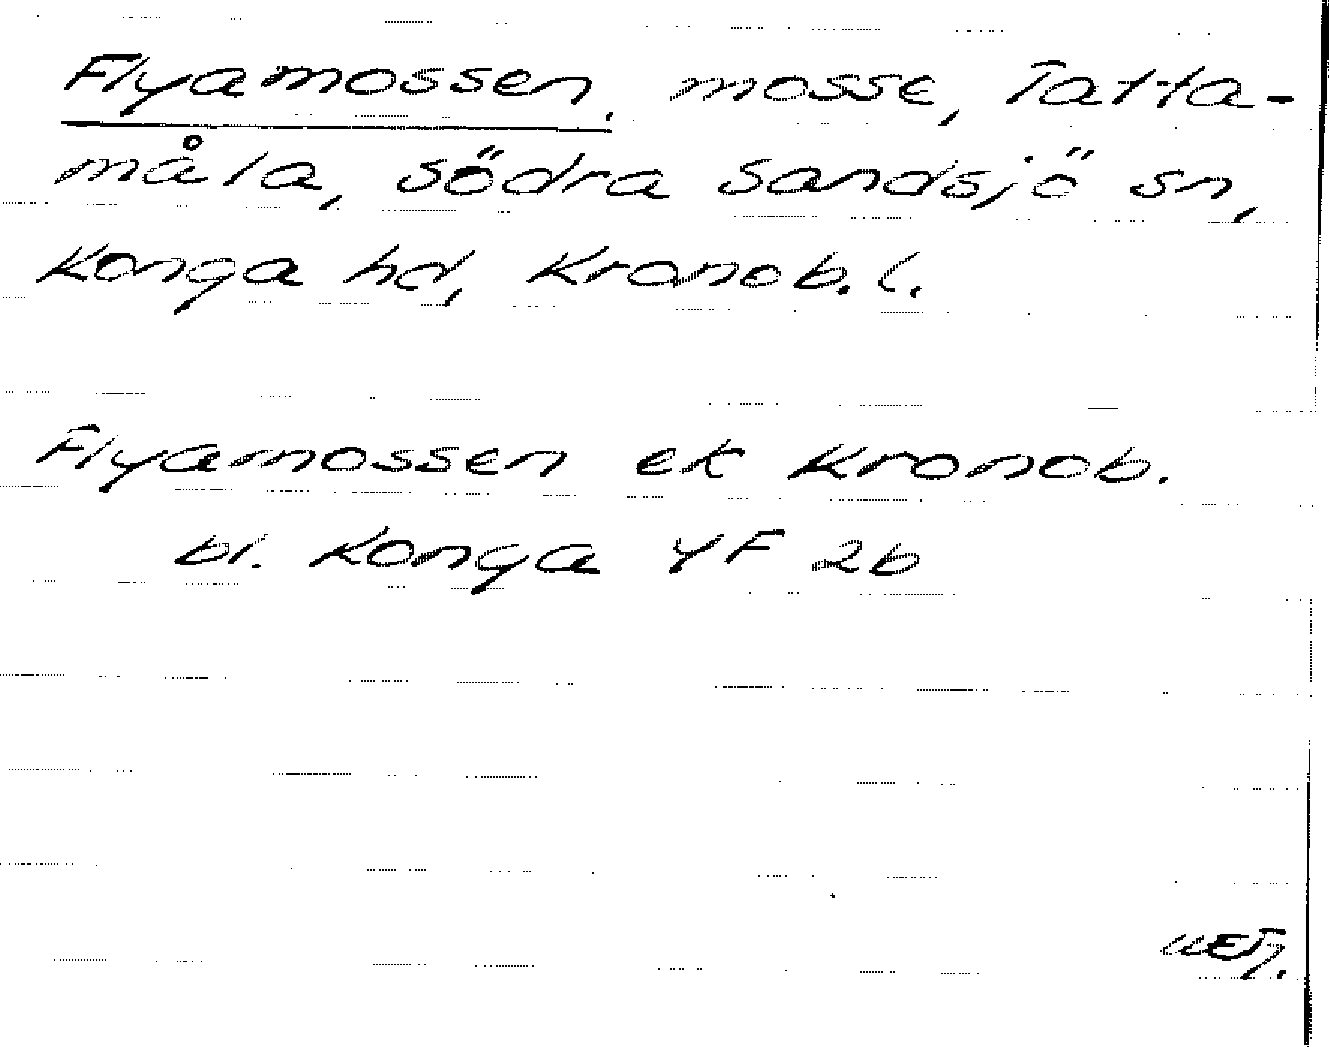 Flyamossen, mosse, Tatta-
måla, södra sandsjö sn,
Konga hd, Kronob. l.
Flyamossen ek Kronob.
bl. Konga YF 2b